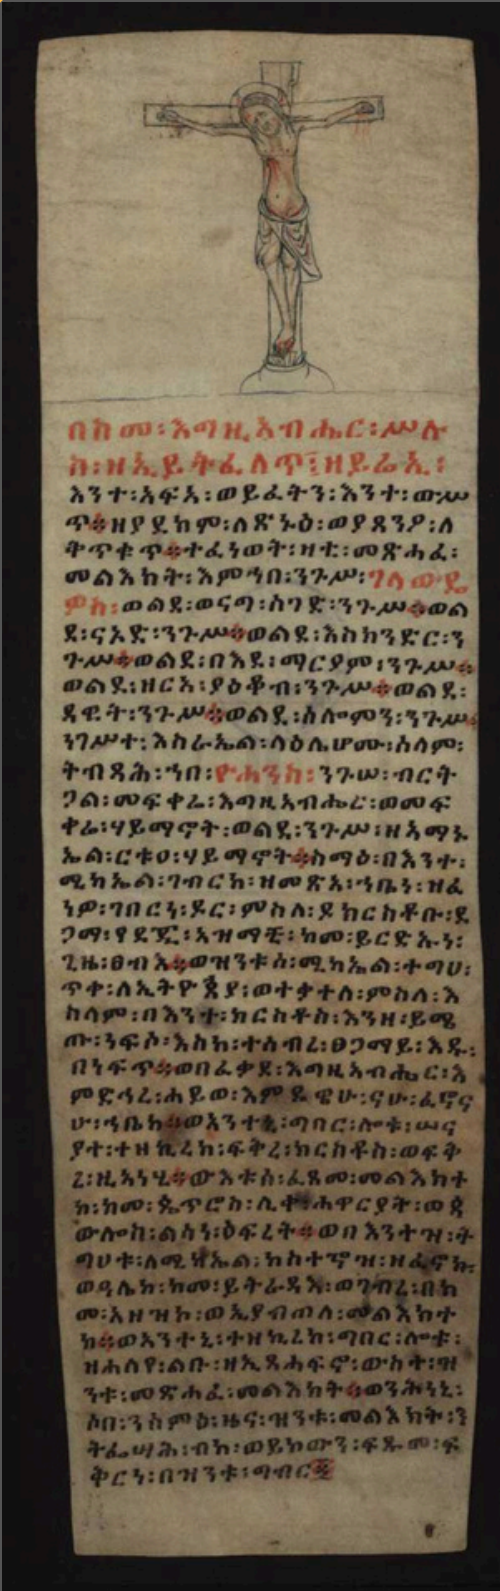 በስመ፡እግዚአብሔር፡ሥሉ
ስ፡ዘኢይትፈለጥ፤ዘይሬኢ፡
እንተ፡አፍአ፡ወይፈትን፡እንተ፡ውሥ
ጥ።ዘያደክም፡ለጽኑዕ፡ወያጸንዖ፡ለ
ቅጥቁጥ።ተፈነወት፡ዛቲ፡መጽሐፈ፡
መልእክት፡እምኀበ፡ንጉሥ፡ገላውዴ
ዎስ፡ወልደ፡ወናግ፡ሰገድ፡ንጉሥ።ወል
ደ፡ናኦድ፡ንጉሥ።ወልደ፡እስክንድር፡ን
ጉሥ።ወልደ፡በእደ፡ማርያም፡ንጉሥ።
ወልደ፡ዘርአ፡ያዕቆብ፡ንጉሥ።ወልደ፡
ዳዊት፡ንጉሥ።ወልደ፡ሰሎሞን፡ንጉሥ።
ነገሥተ፡እስራኤል፡ላዕሌሆሙ፡ሰላም፡
ትብጻሕ፡ኀበ፡ዮሐንስ፡ንጉሠ፡ብርት
ጋል፡መፍቀሬ፡እግዚአብሔር፡ወመፍ
ቀሬ፡ሃይማኖት፡ወልደ፡ንጉሥ፡ዘአማኑ
ኤል፡ርቱዐ፡ሃይማኖት።ስማዕ፡በእንተ፡
ሚካኤል፡ገብርከ፡ዘመጽአ፡ኀቤነ፡ዝ
ገበርነ፡ምስለ፡ክርስቶቡ፡ደ
ጋማ፡አዝማቺ፡ከመ፡ይርድኡነ፡
ጊዜ፡ፀብእ።ወዝንቱሰ፡ሚካኤል፡ተግህ፡
ጥቀ፡ለኢትዮጵያ፡ወተቃተለ፡ምስለ፡እ
ስላም፡በእንተ፡ክርስቶስ፡እንዘ፡ይሜ
ጡ፡ነፍሶ፡እስከ፡ተሰብረ፡ፀጋማይ፡እዱ፡
በነፍጥ።ወበፈቃደ፡እግዚአብሔር፡እ
ምድኅረ፡ሐይወ፡ናሁ፡ፈኖና
ሁ፡ኀቤከ።ወአንተኒ፡ግበር፡ሎቱ፡ሠና
ያተ፡ተዘኪረከ፡ፍቅረ፡ክርስቶስ፡ወፍቅ
ረ፡ዚአነሂ።ውእቱሰ፡ፈጸመ፡መልእክተ
ከ፡ከመ፡ጴጥሮስ፡ሊቀ፡ሐዋርያት፡ወጳ
ውሎስ፡ልሳነ፡ዕፍረት።ወበእንተዝ፡ት
ግህቱ፡ለሚካኤል፡ከስተኖዝ፡ዘፈኖክ
ወዓሌከ፡ከመ፡ይትራዳእ፡ወገብረ፡በከ
መ፡አዘዝከ፡ወኢያብጠለ፡መልእክተ
ከ።ወአንተኒ፡ተዘኪረከ፡ግበር፡ሎቱ፡
ዘሐለየ፡ልቡ፡ዘኢጸሐፍኖ፡ውስተ፡ዝ
ንቱ፡መጽሐፈ፡መልእክት።ወንሕነኒ፡
ሶበ፡ንሰምዕ፡ዜና፡ዝንቱ፡መልእክት፡ን
ትፌሣሕ፡ብከ፡ወይከውን፡ፍጹመ፡ፍ
ቅርነ፡በዝንቱ፡ግብር።